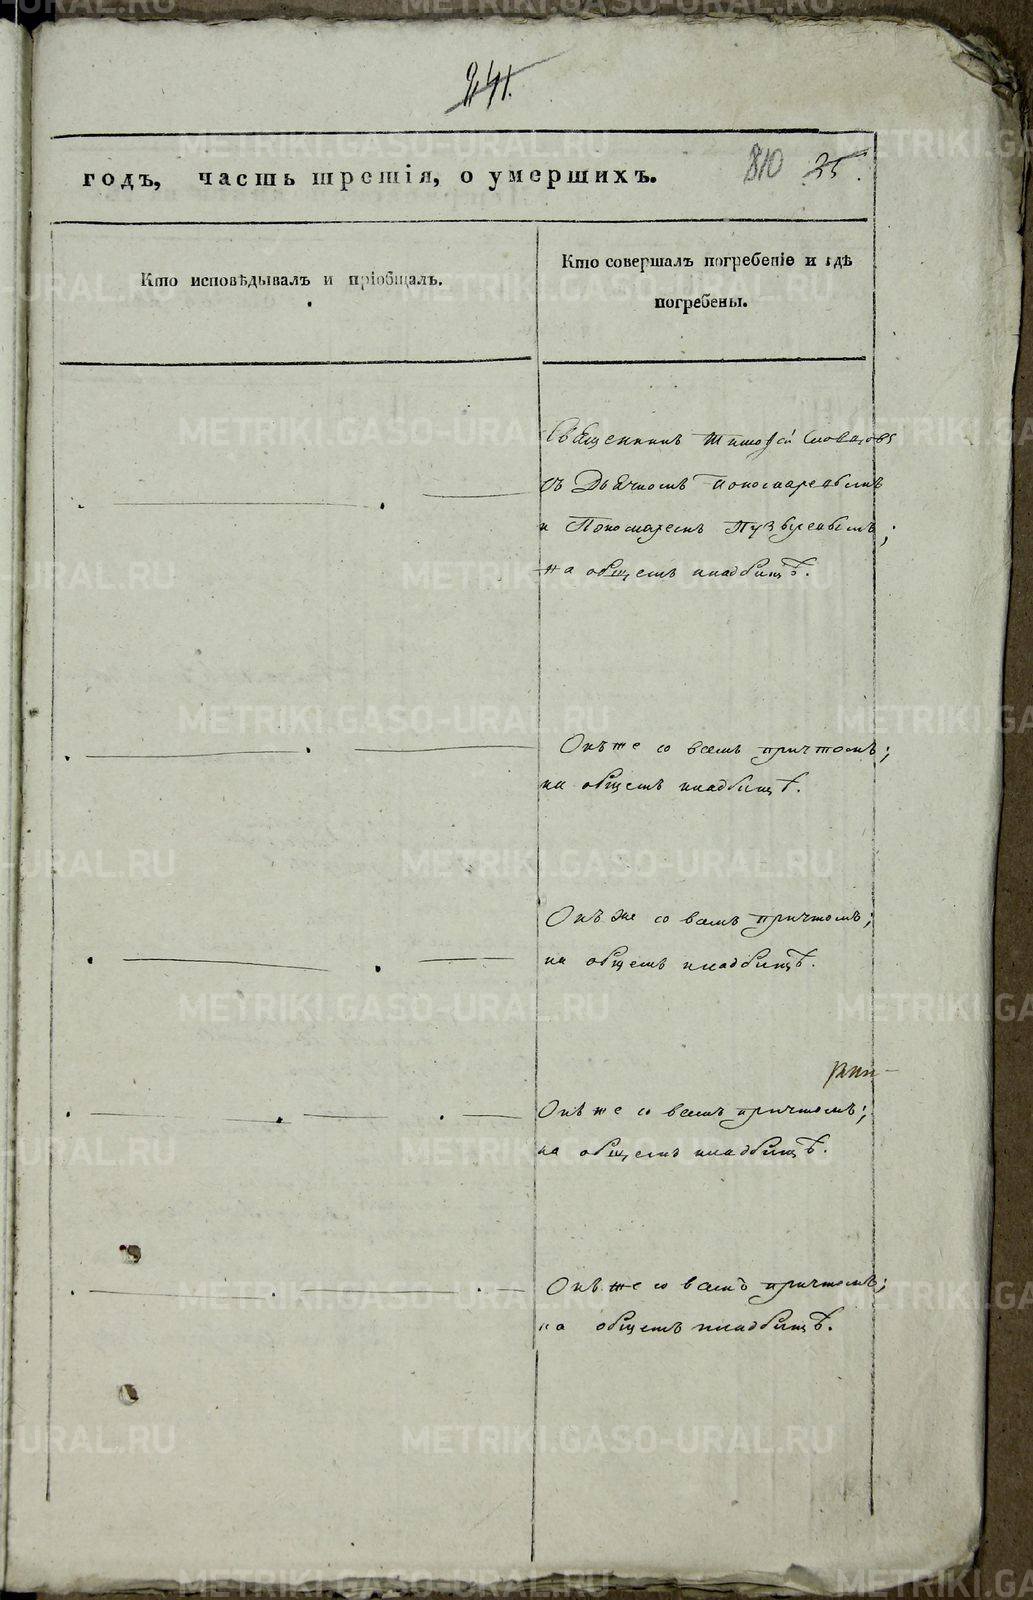 241.
годъ, часть третія, о умершихъ.
810 25.
Кто исповѣдывалъ и пріобщалъ.
Кто совершалъ погребеніе и гдѣ
погребены.
Священникъ Тимоѳей Словцовъ
съ Дьячкомъ Пономаревымъ
и Пономаремъ Пузыревымъ;
на общемъ кладбищѣ.
Онъ же со всемъ причтомъ;
на общемъ кладбищѣ.
Онъ же со всемъ причтомъ;
на общемъ кладбищѣ.
Онъ же со всемъ причтомъ;
на общемъ кладбищѣ.
Онъ же со всемъ причтомъ;
на общемъ кладбищѣ.
METRIKI.GASO-URAL.RU